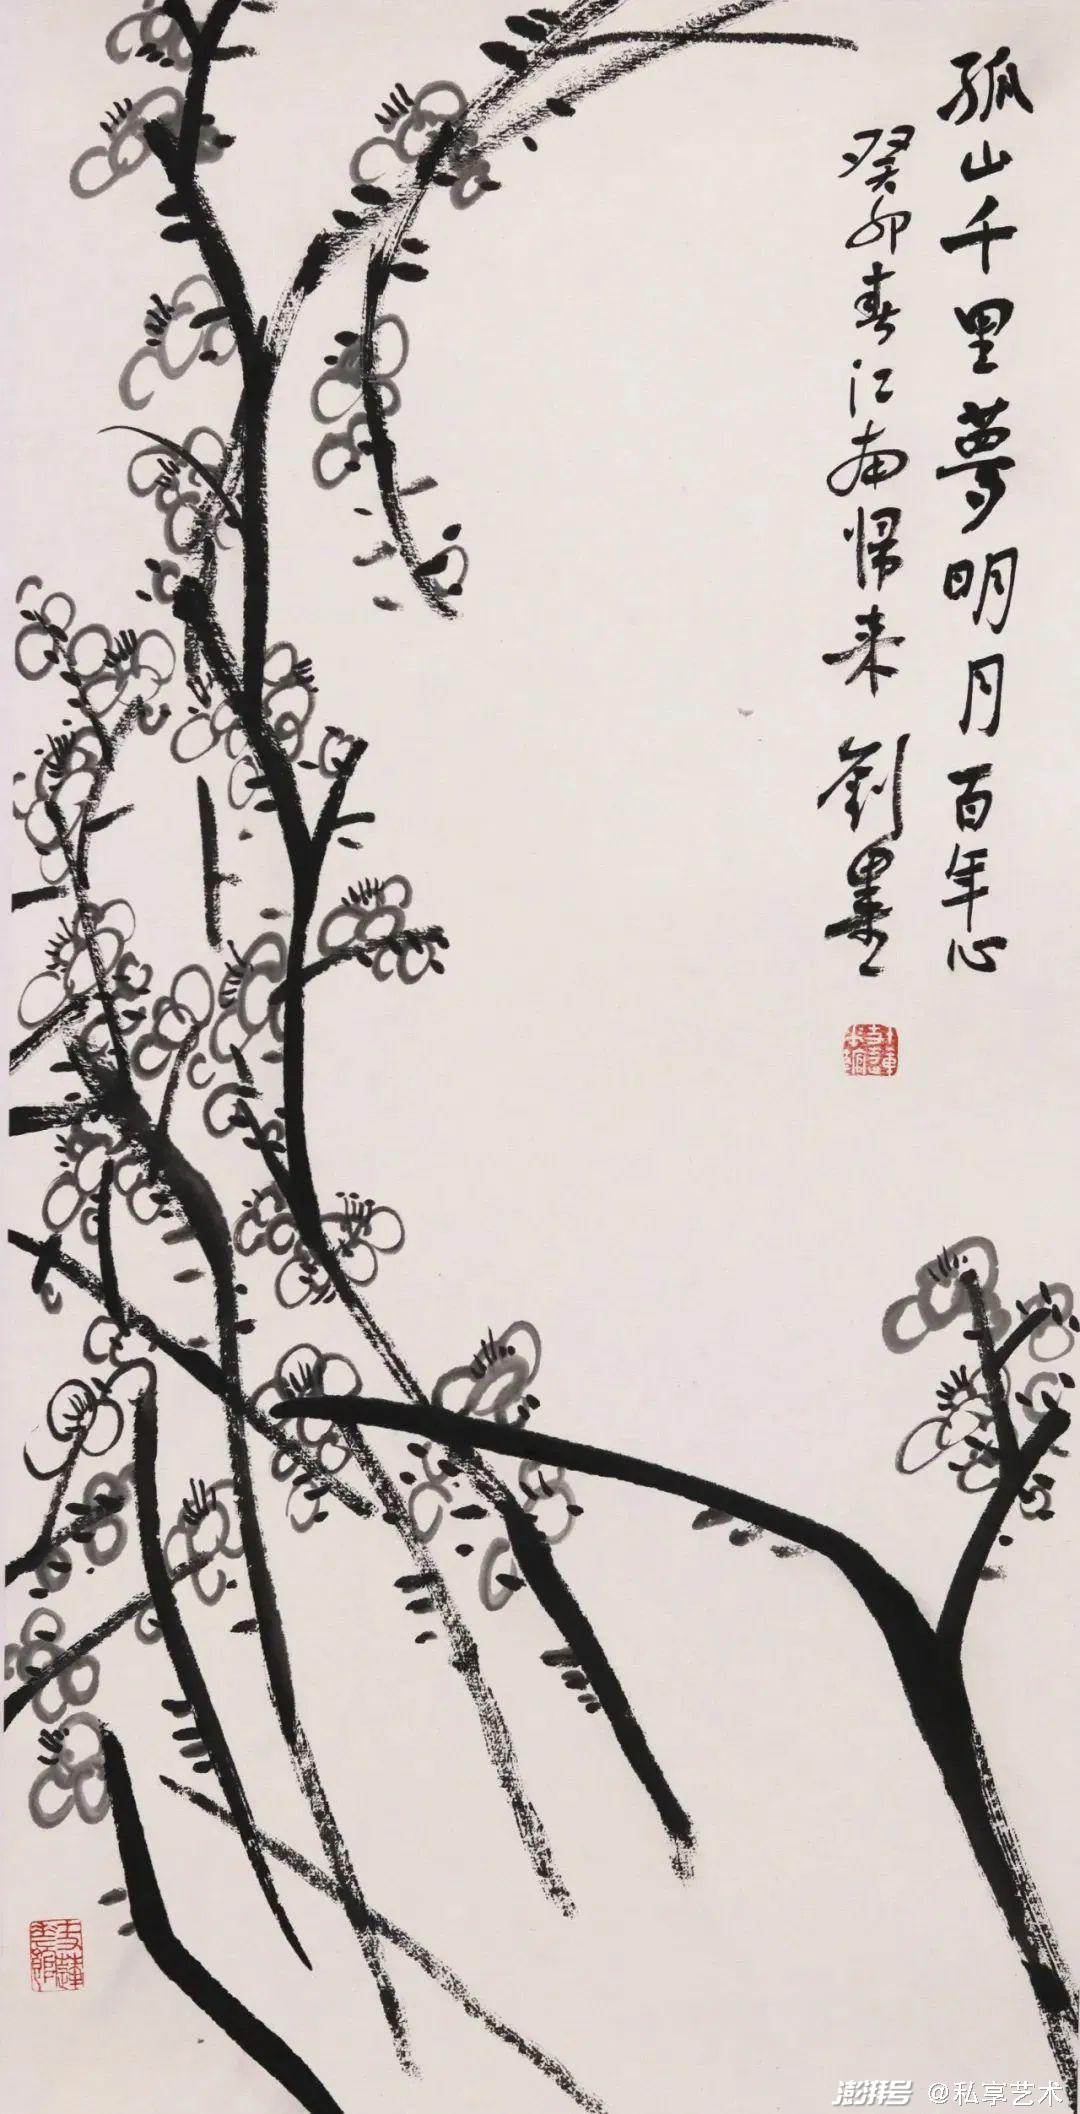 孤山千里夢明月百年心
癸卯春江南歸来劉墨
澎湃号 @私享艺术